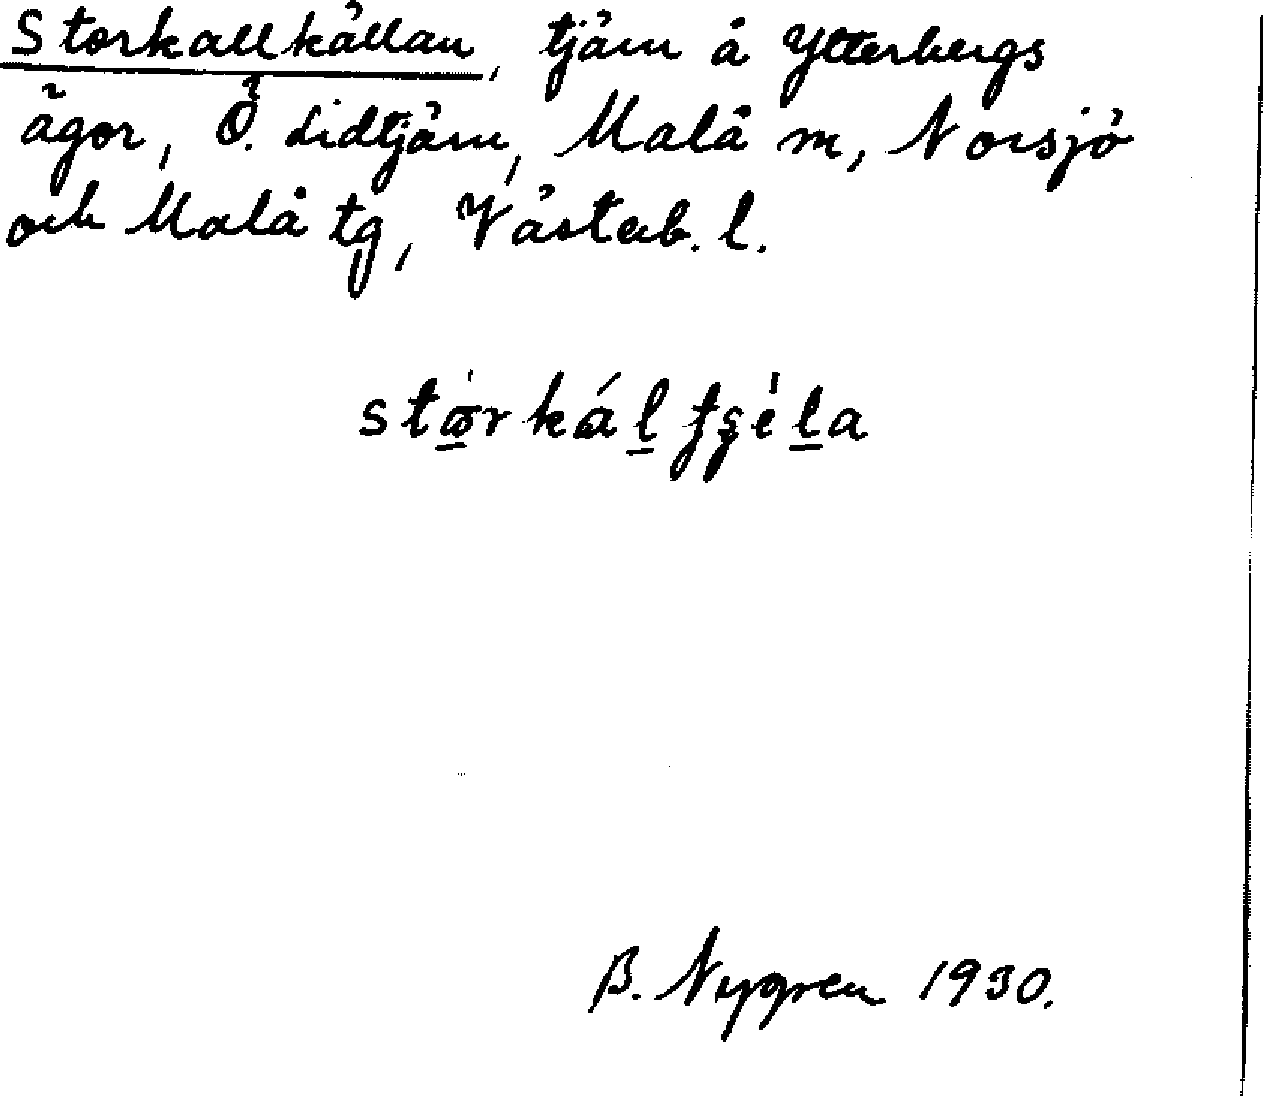 Storkallkällan, tjärn å Ytterbergs
ägor, Ö. Lidtjärn, Malå m, Norsjö
och Malå tg, Västerb. l.
B. Nygren 1930.